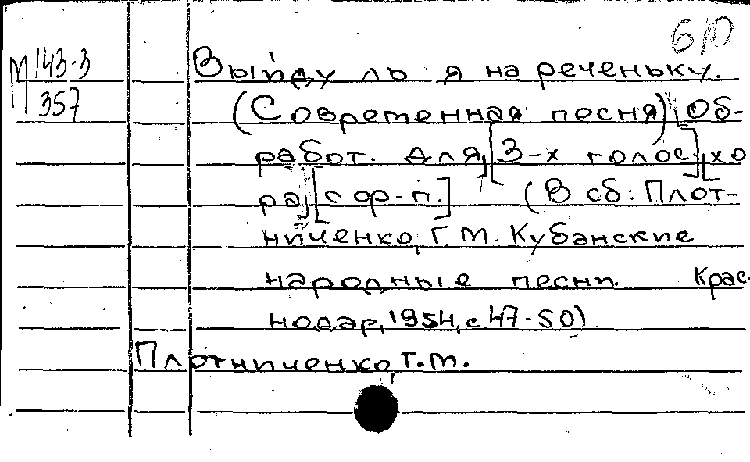 б/р
М 143-3
357
Выйду ль я на реченьку.
(Современная песня) Об-
работ. для [3-х голос.] хо
ра, [с ор-п.] (В сб: Плот-
ниченко, Г.М. Кубанские
народные песни. Крас-
нодар, 1954, с 47-50)
Плотниченко, Г.М.